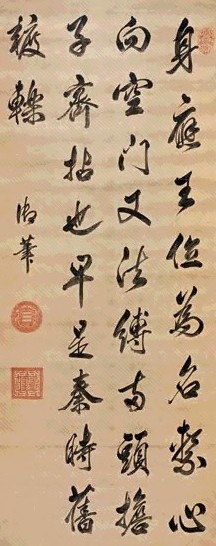 身應王位為名繫心
向空門又法縛兩頭擔
子齊拈也早是秦時舊
轢
御筆